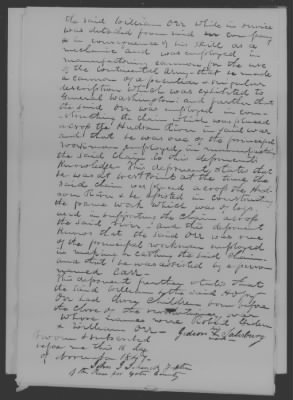 the said William Orr while in service
was detached from said company
& in consequence of his skill as a
mechanic and was employed in
manufactoring cannon for the use
of the continental army that he made
a cannon of a peculiar & singular
description which was exhibited to
General Washington and further that
the said Orr was employed in con-
structing the chain which was placed
across the Hudson River in said war
and that he was one of the principal
workmen employed in manufacturing
the said chain to this deponents
knowledge. This deponent states that
he was at West Point at the time the
said chain was placed across the Hud-
son River & he assisted in constructing
the frame work which was
used in supporting the chain across
the said river and this deponent
knows that the said Orr was one
of the principal workmen employed
in making & the said chain
and that he was assisted by a person
named Carr
This deponent further states that
the said William & the said
Orr had three children born before
the close of the revolutionary war
whose names were Robert
& William Orr Gideon Salsbury
Sworn & subscribed
before me this 16 day
of November 1847
John J
of the for County